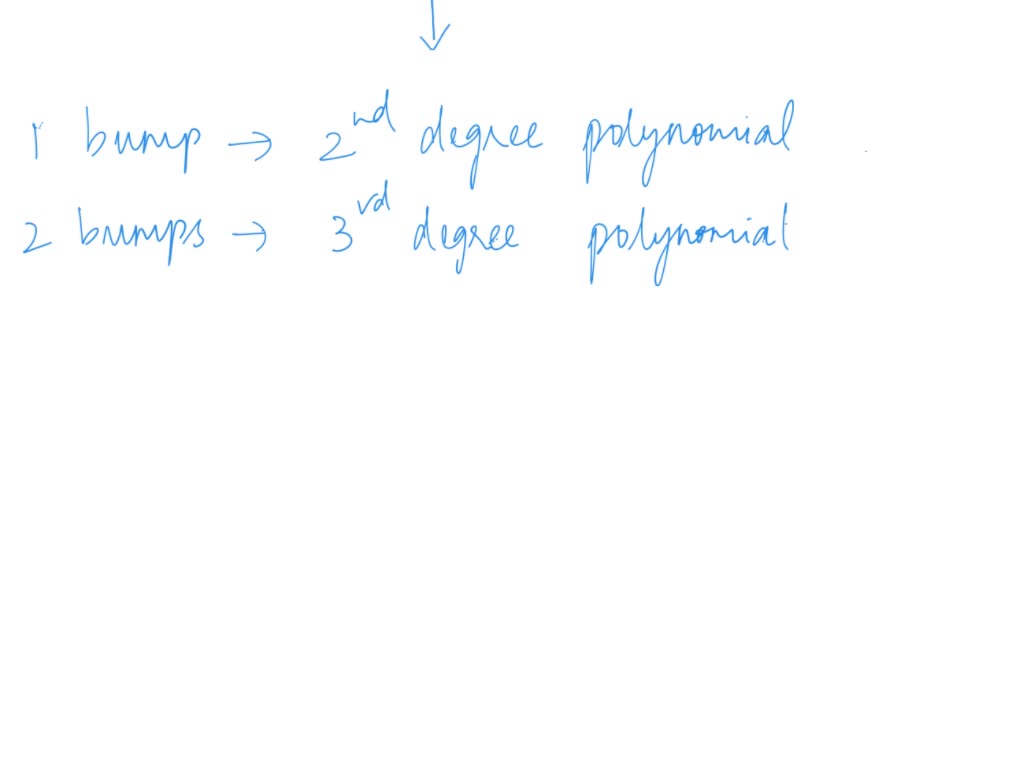 1 bump → 2nd degree polynomial
2 bumps → 3rd degree polynomial